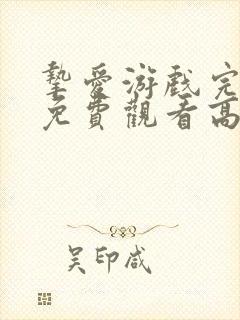 摯愛游戲完
免費觀看高
吴印咸